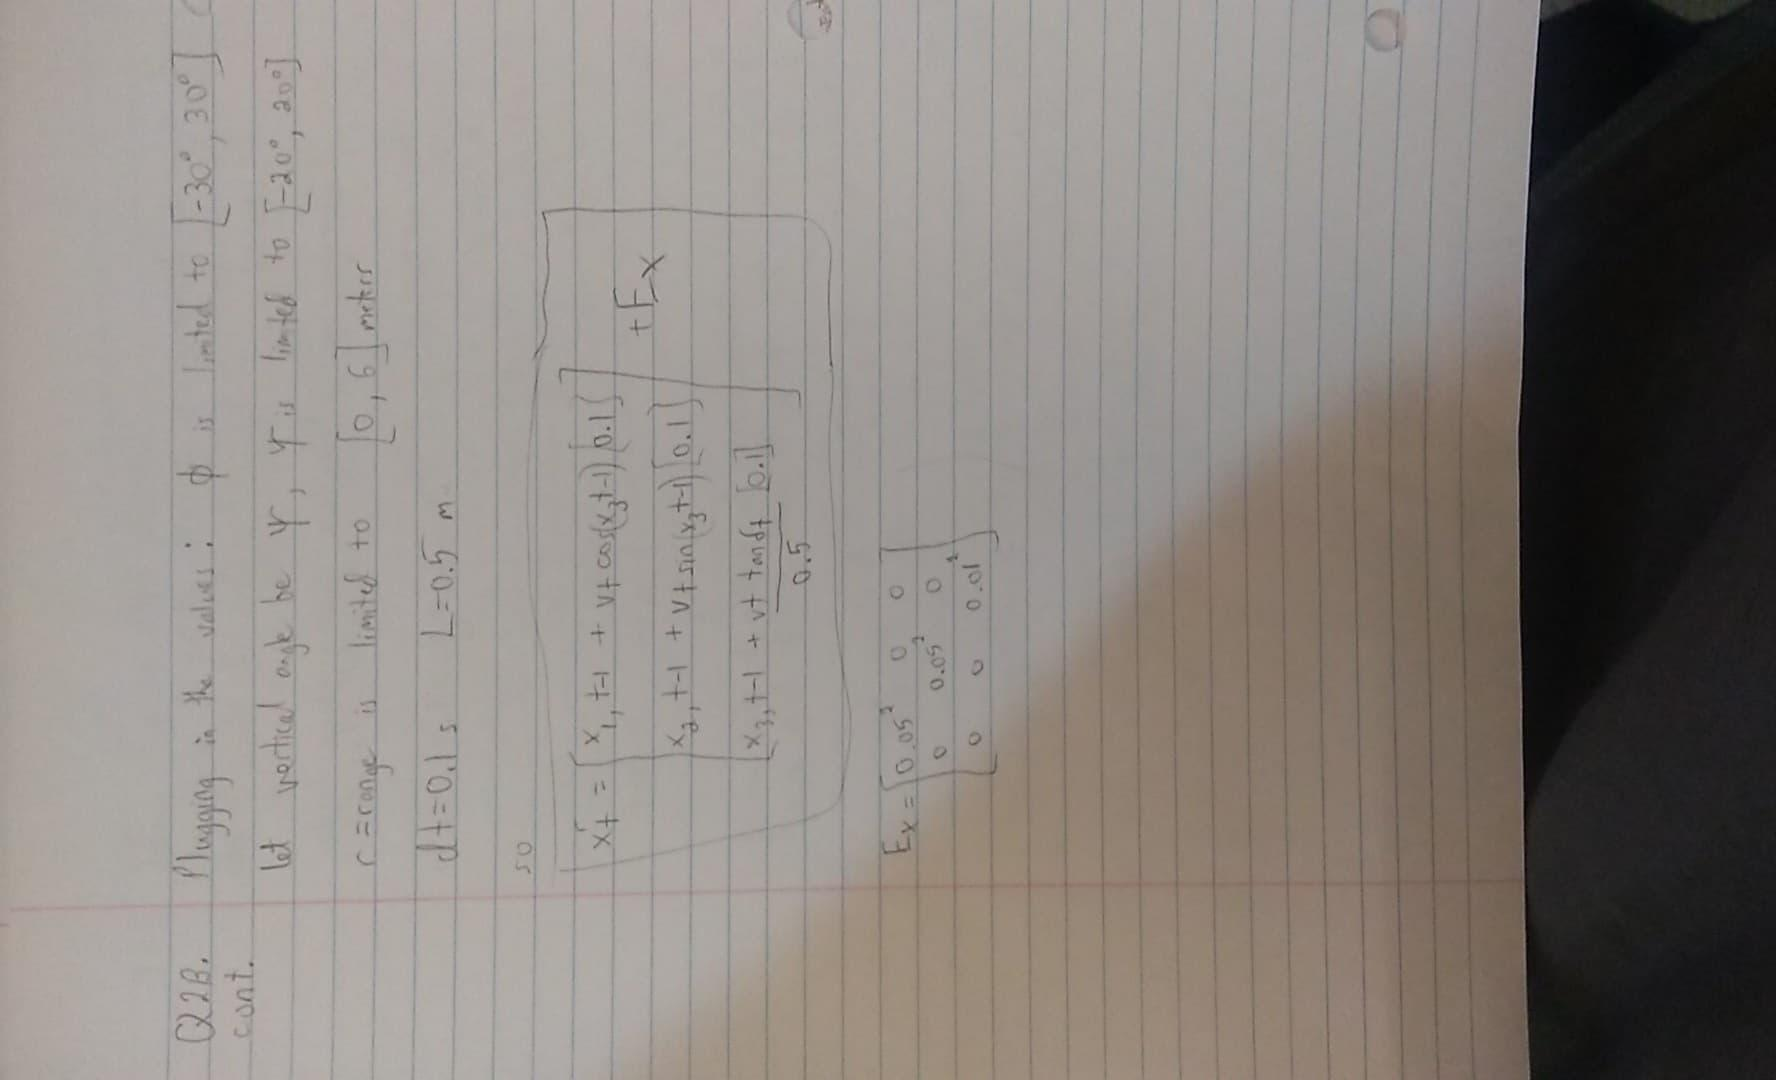 Q2B. Plugging in the values: ϕ is limited to [-30°, 30°]
cont.
let vertical angle be Ψ, Ψ is limited to [-20°, 20°]
r = range is limited to [0, 6] meters
dt = 0.1 s L = 0.5 m
so
xt = [x1,t-1 + vt cos(x3,t-1) [0.1]
x2,t-1 + vt sin(x3,t-1) [0.1]
x3,t-1 + vt tan δt/0.5 [0.1]] + Ex
Ex = [0.05² 0 0
0 0.05² 0
0 0 0.01²]